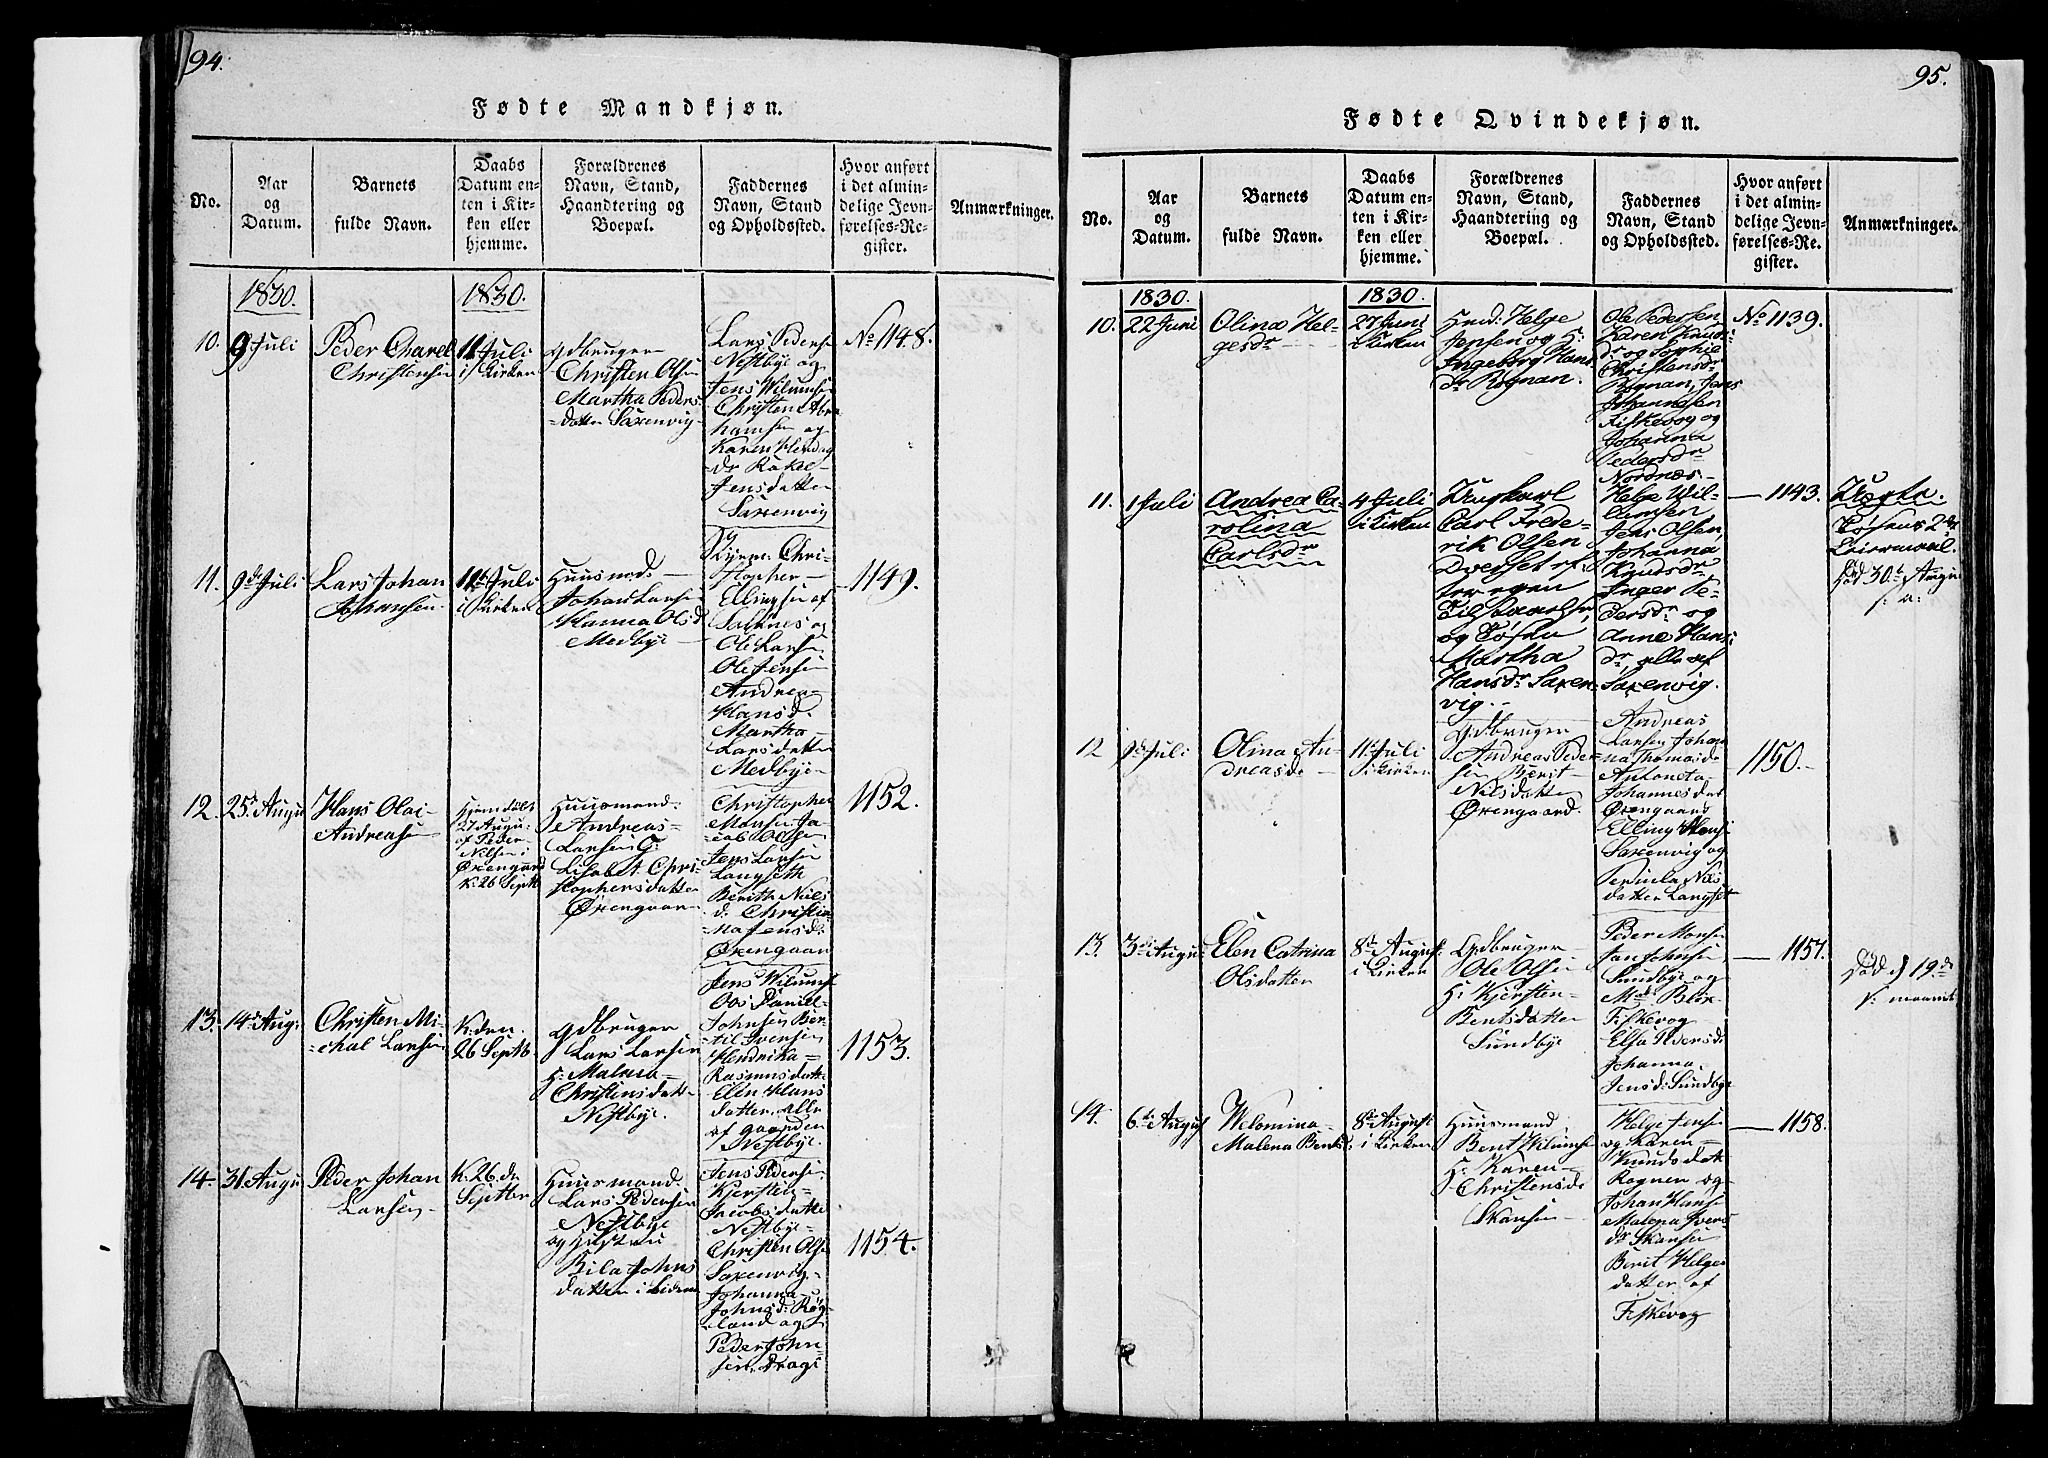 94.
Fødte Mandkjøn.
No.
Aar
og
Datum.
Barnets
fulde Navn.
Daabs
Datum en-
ten i Kir-
ken eller
hjemme.
Forældrenes
Navn, Stand,
Haandtering og
Boepæl.
Faddernes
Navn, Stand
og Opholdssted.
Hvor anført
i det almin-
delige Jevn-
førelses-Re-
gister.
Anmærkninger.
1830.
1830.
10.
9 Juli
Peder Charel
Christensen
11 Juli
i Kirken
Gdbruger
Christen Olsen
Martha Peders-
datter Saxenvig
Lars Pedersen
Nestbye og
Jens Wilumsen
Christen Abra
hamsen og
Karen
dr Rakel
Jensdatter
Saxenvig
No 1148.
11.
9de Juli
Lars Johan
Johansen
11te Juli
i Kirken
Huusmd:
Johan Larsen
Hanna Olsd
Medbye
Chri-
stopher
Ellingsen af
Saxnes og
Ole Larsen
Ole Jensen
Andrea
Hansd.
Martha
Larsdatter
Medbye
1149.
12.
25 Augu
Hans Olai
Andreasen
Hjemdøbt
27 Augu:
af Peder
Nilsen i
Øxengaard
K: 26 Septb
Huusmand:
Andreas
Larsen G:
Lisabet Chri-
stophersdatter
Øxengaar
Christopher
Monsen Ja-
cob Olsen
Jens Larsen
Langseth
Berith Niels
d: Christin-
na Jensd:
Øxengaar
1152.
13.
14 Aug:
Christen Mi-
chal Larsen
K: den
26 Septb
Gdbruger
Lars Larsen
H: Malena
Christensdatt-
Nestbye.
Jens Wilums
Daniel
Johnsen Ber-
til Svensen
Hendrika
Rasmusdatt
Elen Hans
datter, alle
af gaarden
Nestbye.
1153.
14.
31 Augu
Peder Johan
Larsen
K: 26. de
Septbr
Huusmand.
Lars Pedersen
Nestbye
og Hustru
Bila Johns
datter i
Jens Pedersen
Kjersten
Jacobsdatte
Nestbye
Christen Olse
Saxenvig
Johanna
Johnsd: Røg-
land og
Peder John
sen, Dragi
1154.
95.
Fødte Qvindekjøn.
No.
Aar
og
Datum.
Barnets
fulde Navn.
Daabs
Datum en-
ten i Kir-
ken eller
hjemme.
Forældrenes
Navn, Stand,
Haandtering og
Boepæl.
Faddernes
Navn, Stand
og Opholdssted.
Hvor anført
i det almin-
delige Jevn-
førelses-Re-
gister.
Anmærkninger.
1830.
1830.
10.
22 Juni
Olina Hel-
gesdr
27 Juni
i Kirken
Huusmd: Helge
Jensen og H:
Ingeborg Hans
dr Rognan.
Ole Pedersen
Karen Knuds
dr og Sophie
Christensdr
Rognan, Jens
Johannesen
Fiskevog og
Johanna
Pedersdr
Nordnæs.
No 1139.
11.
1 Juli
Andrea Ca-
rolina
Carlsdr
4 Juli
i Kirken
Ungkarl
Carl Frede-
rik Olsen
og Tøsen
Martha
Hansdr Saxen
vig.
Helge Wil-
lumsen
Jens Olsen,
Johanna
Knudsdr
Inger Pe-
dersdr og
Anne Hans
dr, alle af
Saxenvig.
1143.
Uægte.
Tøsens 2det
Leiermaal.
Død 30te Augu
s: a:
12
9de Juli
Olina An-
dreasdr
11te Juli
i Kirken
Gdbruger
Andreas Peder-
sen Berit
Nilsdatter
Øxengaard.
Andreas
Larsen Johan
na Thomasd
Antoneta
Johannesdat
Øxengaard
Elling Hansen
Saxenvig og
Pernela Nils
datter Langset
1150.
13.
3de Augu
Elen Catrina
Olsdatter
8de August
i Kirken
Gdbruger
Ole Olsen
H: Kjersten
Bentsdatter
Sundbye
Peder Monsen
Jan Johnsen
Sundbye og
Mad: Blix
Fiskevog
Elsa Pedersd
Johanna
Jensd: Sundbye
1157.
Død d 19de
s: maaned
14.
6te Augus
Welomina
Malena Bents
8de August
i Kirken
Huusmand
Bent Wilumsen
H: Karen
Christensdr
Skansen
Helge Jensen
og Karen
Knudsdatt
Rognen og
Johan Hansen
Malena Ivers
dr Skansen
Berit Helges
datter af
Fiskevog
1158.